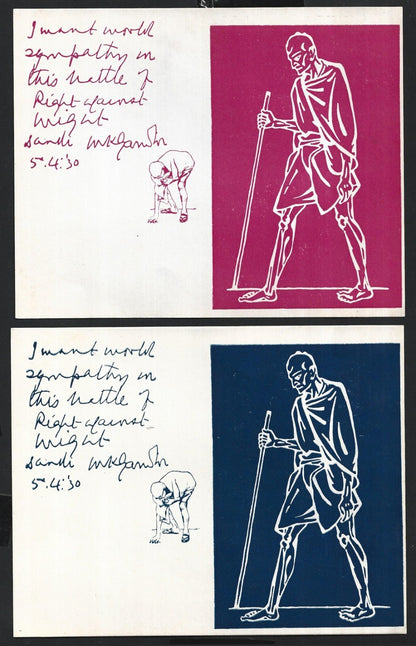 I want world
sympathy in
this battle of
Right against
Might
Dandi MKGandhi
5.4.'30
I want world
sympathy in
this battle of
Right against
Might
Dandi MKGandhi
5.4.'30